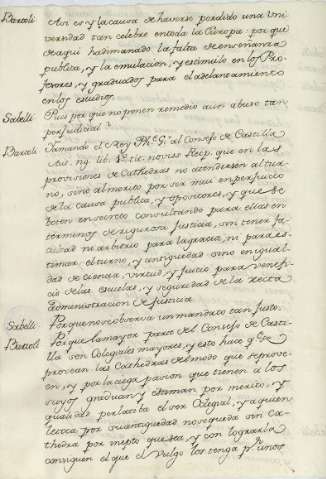 Bartoli Asi es y la causa de haverse perdido una Uni
versidad tan celebre en toda la Europa: por que
de aqui ha dimanado la falta de enseñanza
publica, y la emulacion, y estimulo en los Pro
fesores, y graduados para el adelantamiento
en los estudios.
Sabelli Pues por que no ponen remedio a un abuso tan
perjudicial?
Bartoli Tiene mandado el Rey Phe. al Consejo de Castilla
Aut. lib. tit. novis Recop. que en las
provisiones de Cathedras no atendiesen al tur
no, sino al merito, por ser mui en perjuicio
de la causa publica, y opositores, y que se
voten en secreto consultando para ellas en
terminos de rigurosa Justicia, sin tener fa
cultad ni arbitrio para la gracia, ni para es
timar el turno, y antiguedad sino en igual
dad de ciencia, virtud, y juicio para venefi
cio de las escuelas, y seguridad de la recta
administracion de Justicia.
Sabelli Porque no se observa un mandato tan justo.
Bartoli Porque la mayor parte del Consejo de Casti
lla son Colegiales mayores, y esto hace que se
provean las Cathedras del modo que se prove
en, y por la ciega pasion que tienen a los
suyos graduan, y estiman por merito, y
igualdad por la sola el ser Colegial, y a quien
le toca por su antiguedad no se queda sin ca
thedra por inepto que sea, y con lograrla
consiguen el que el Vulgo los tenga pr. unos